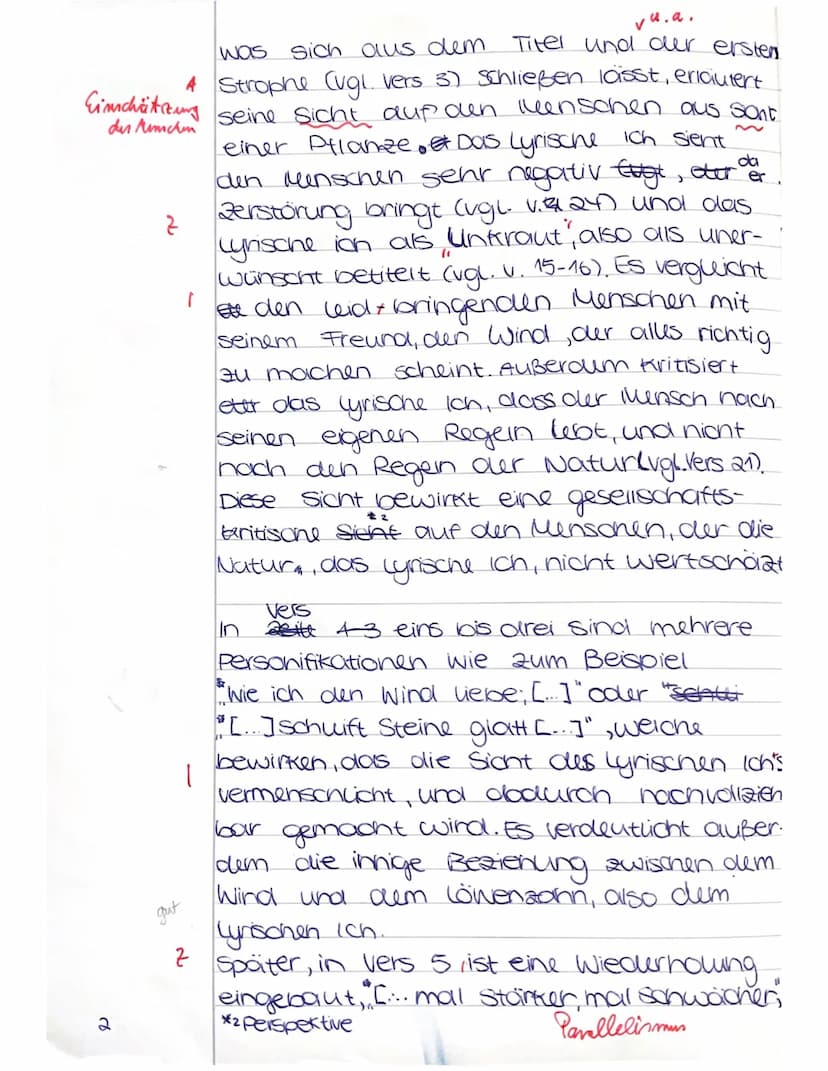 u.a.
was sich aus dem Titel und der ersten
Strophe (vgl. Vers 3) schließen lässt, erläutert
A
Einschätzung
des Menschen
seine Sicht auf den Menschen aus Sicht
einer Pflanze. Das lyrische Ich sieht
den Menschen sehr negativ, da er
Z
Zerstörung bringt (vgl. V. 24) und das
lyrische ich als „Unkraut", also als uner-
wünscht betitelt (vgl. V. 15-16). Es vergleicht
1
den leid bringenden Menschen mit
seinem Freund, den Wind, der alles richtig
zu machen scheint. Außerdum kritisiert
das lyrische Ich, dass der Mensch nach
seinen eigenen Regeln lebt, und nicht
nach den Regeln der Natur (vgl. Vers 21).
Diese Sicht bewirkt eine gesellschafts-
kritische Sicht *2 auf den Menschen, der die
Natur, das lyrische Ich, nicht wertschätzt
Vers
In Zeile 1-3 eins bis drei sind mehrere
Personifikationen wie zum Beispiel
„Wie ich den Wind liebe; [...]" oder
„[...] schleift Steine glatt [...]", welche
bewirken, das die Sicht des lyrischen Ich's
1
vermenschlicht, und dadurch nachvollzieh
bar gemacht wird. Es verdeutlicht außer-
dem die innige Beziehung zwischen dem
Wind und dem Löwenzahn, also dem
gut
lyrischen Ich.
Z
Später, in Vers 5, ist eine Wiederholung
eingebaut, „[... mal stärker, mal schwächer,"
2
*2 Perspektive
Parallelismus